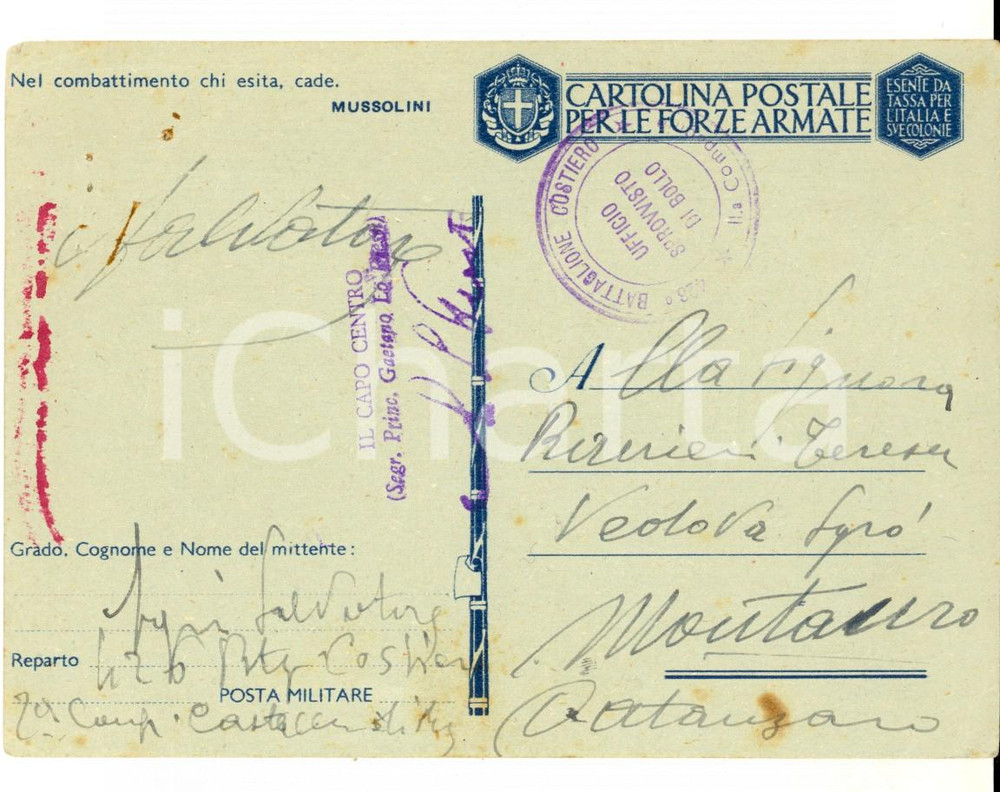 Nel combattimento chi esita, cade.
MUSSOLINI
CARTOLINA POSTALE
PER LE FORZE ARMATE
ESENTE DA
TASSA PER
L'ITALIA E
SVE COLONIE
BATTAGLIONE COSTIERO
UFFICIO
SPROVVISTO
DI BOLLO
Salvatore
IL CAPO CENTRO
(Segr. Princ. Gaetano Lo
iCharta
A lla Signora
Teresa
Vedova Sgró
Montauro
Catanzaro
Grado, Cognome e Nome del mittente:
Sgró Salvatore
Reparto 426 Btg Costiero
POSTA MILITARE
Comp.